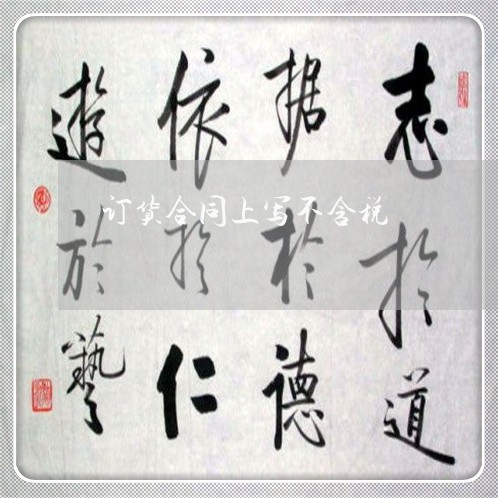 志於道
据於德
依於仁
遊於藝
订货合同上写不含税